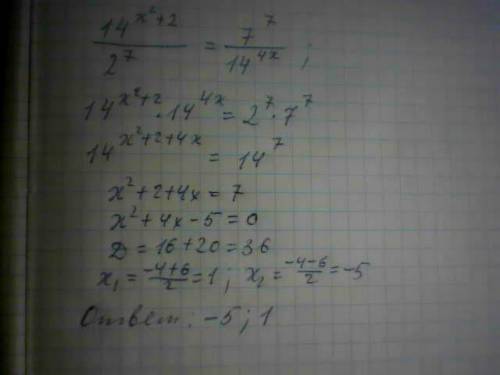 14^(x²+2) / 2^7 = 7^7 / 14^(4x) ;
14^(x²+2) · 14^(4x) = 2^7 · 7^7
14^(x²+2+4x) = 14^7
x²+2+4x = 7
x²+4x-5=0
D=16+20=36
x₁ = (-4+6)/2 = 1 ; x₂ = (-4-6)/2 = -5
Ответ: -5; 1